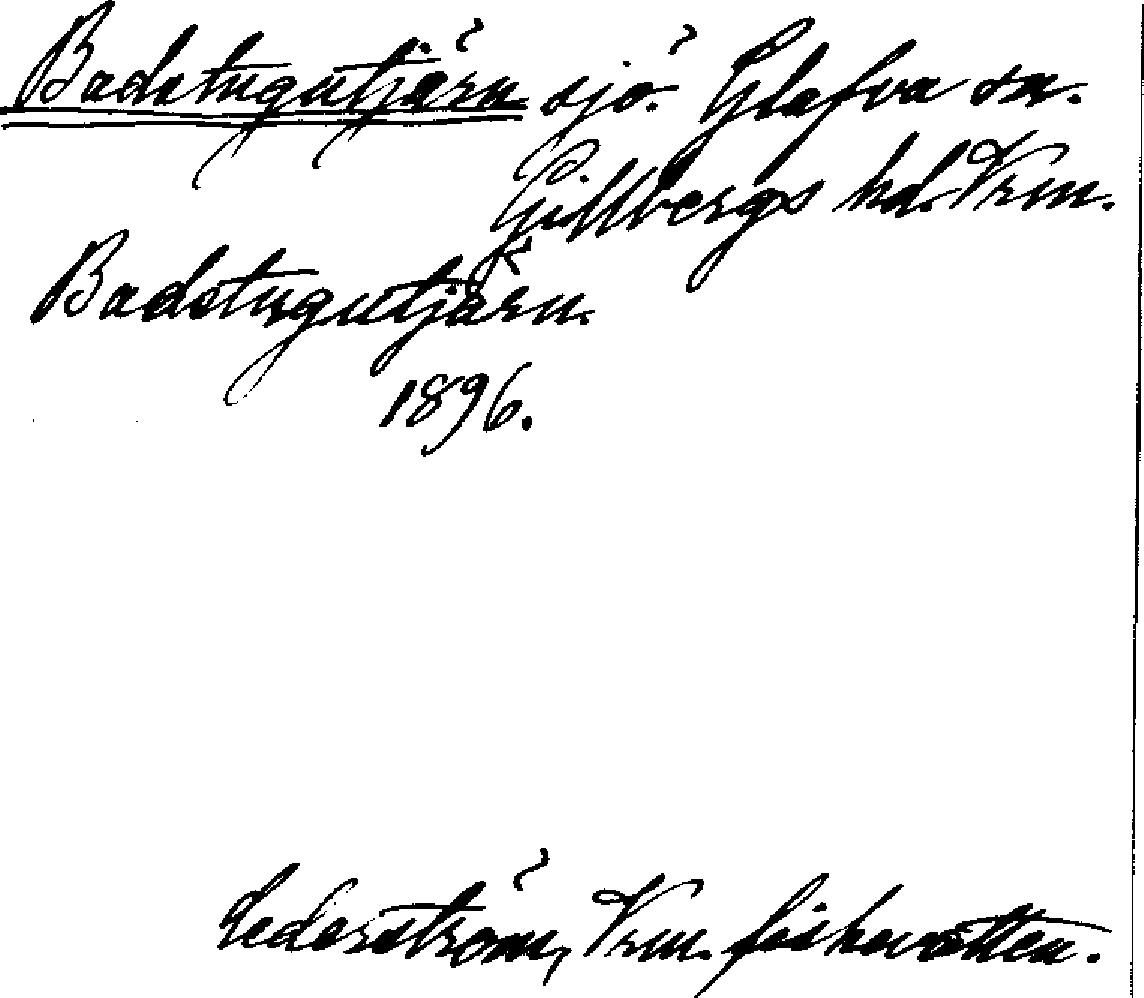 Badstugutjärn sjö. Glafva sn.
Gillbergs hd. Vrm.
Badstugutjärn.
1896.
Cederström, Vrm. fiskevatten.